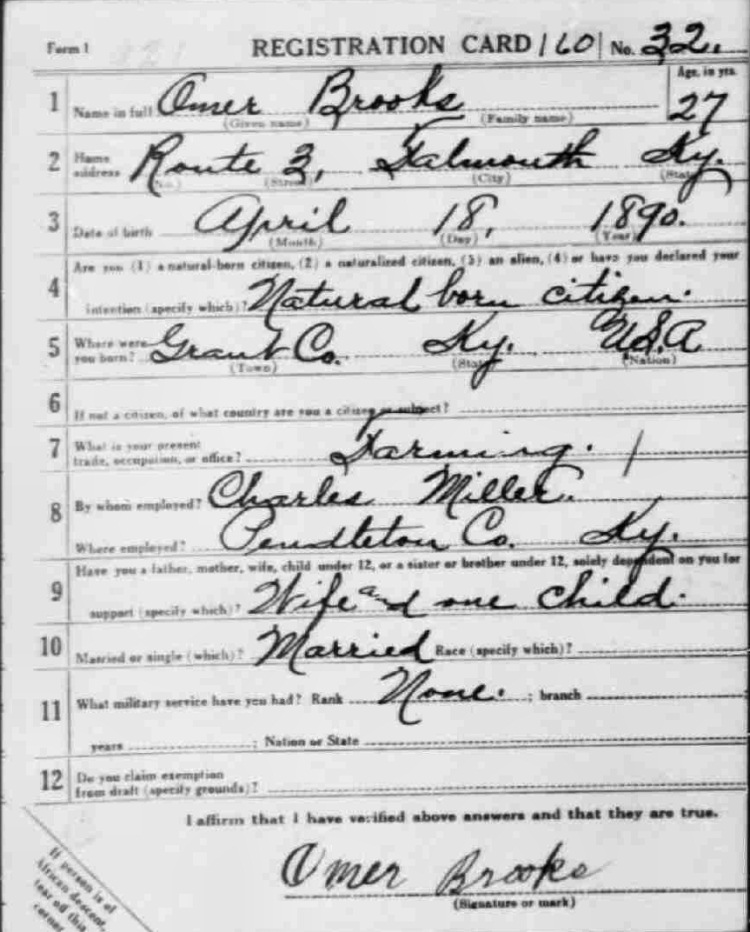 Form 1 REGISTRATION CARD 160 No. 32.
Age, in yrs.
1 Name in full Omer Brooks 27
(Given name) (Family name)
2 Home address Route 3, Falmouth Ky.
(No.) (Street) (City) (State)
3 Date of birth April 18, 1890.
(Month) (Day) (Year)
4 Are you (1) a natural-born citizen, (2) a naturalized citizen, (3) an alien, (4) or have you declared your
intention (specify which)? Natural born citizen.
5 Where were you born? Grant Co. Ky. U.S.A
(Town) (State) (Nation)
6 If not a citizen, of what country are you a citizen or subject?
7 What is your present trade, occupation, or office? Farming. /
8 By whom employed? Charles Miller.
Where employed? Pendleton Co. Ky.
9 Have you a father, mother, wife, child under 12, or a sister or brother under 12, solely dependent on you for
support (specify which)? Wife and one child.
10 Married or single (which)? Married Race (specify which)?
11 What military service have you had? Rank None. ; branch
years ; Nation or State
12 Do you claim exemption
from draft (specify grounds)?
I affirm that I have verified above answers and that they are true.
Omer Brooks
(Signature or mark)
If person is of
African descent,
tear off this
corner